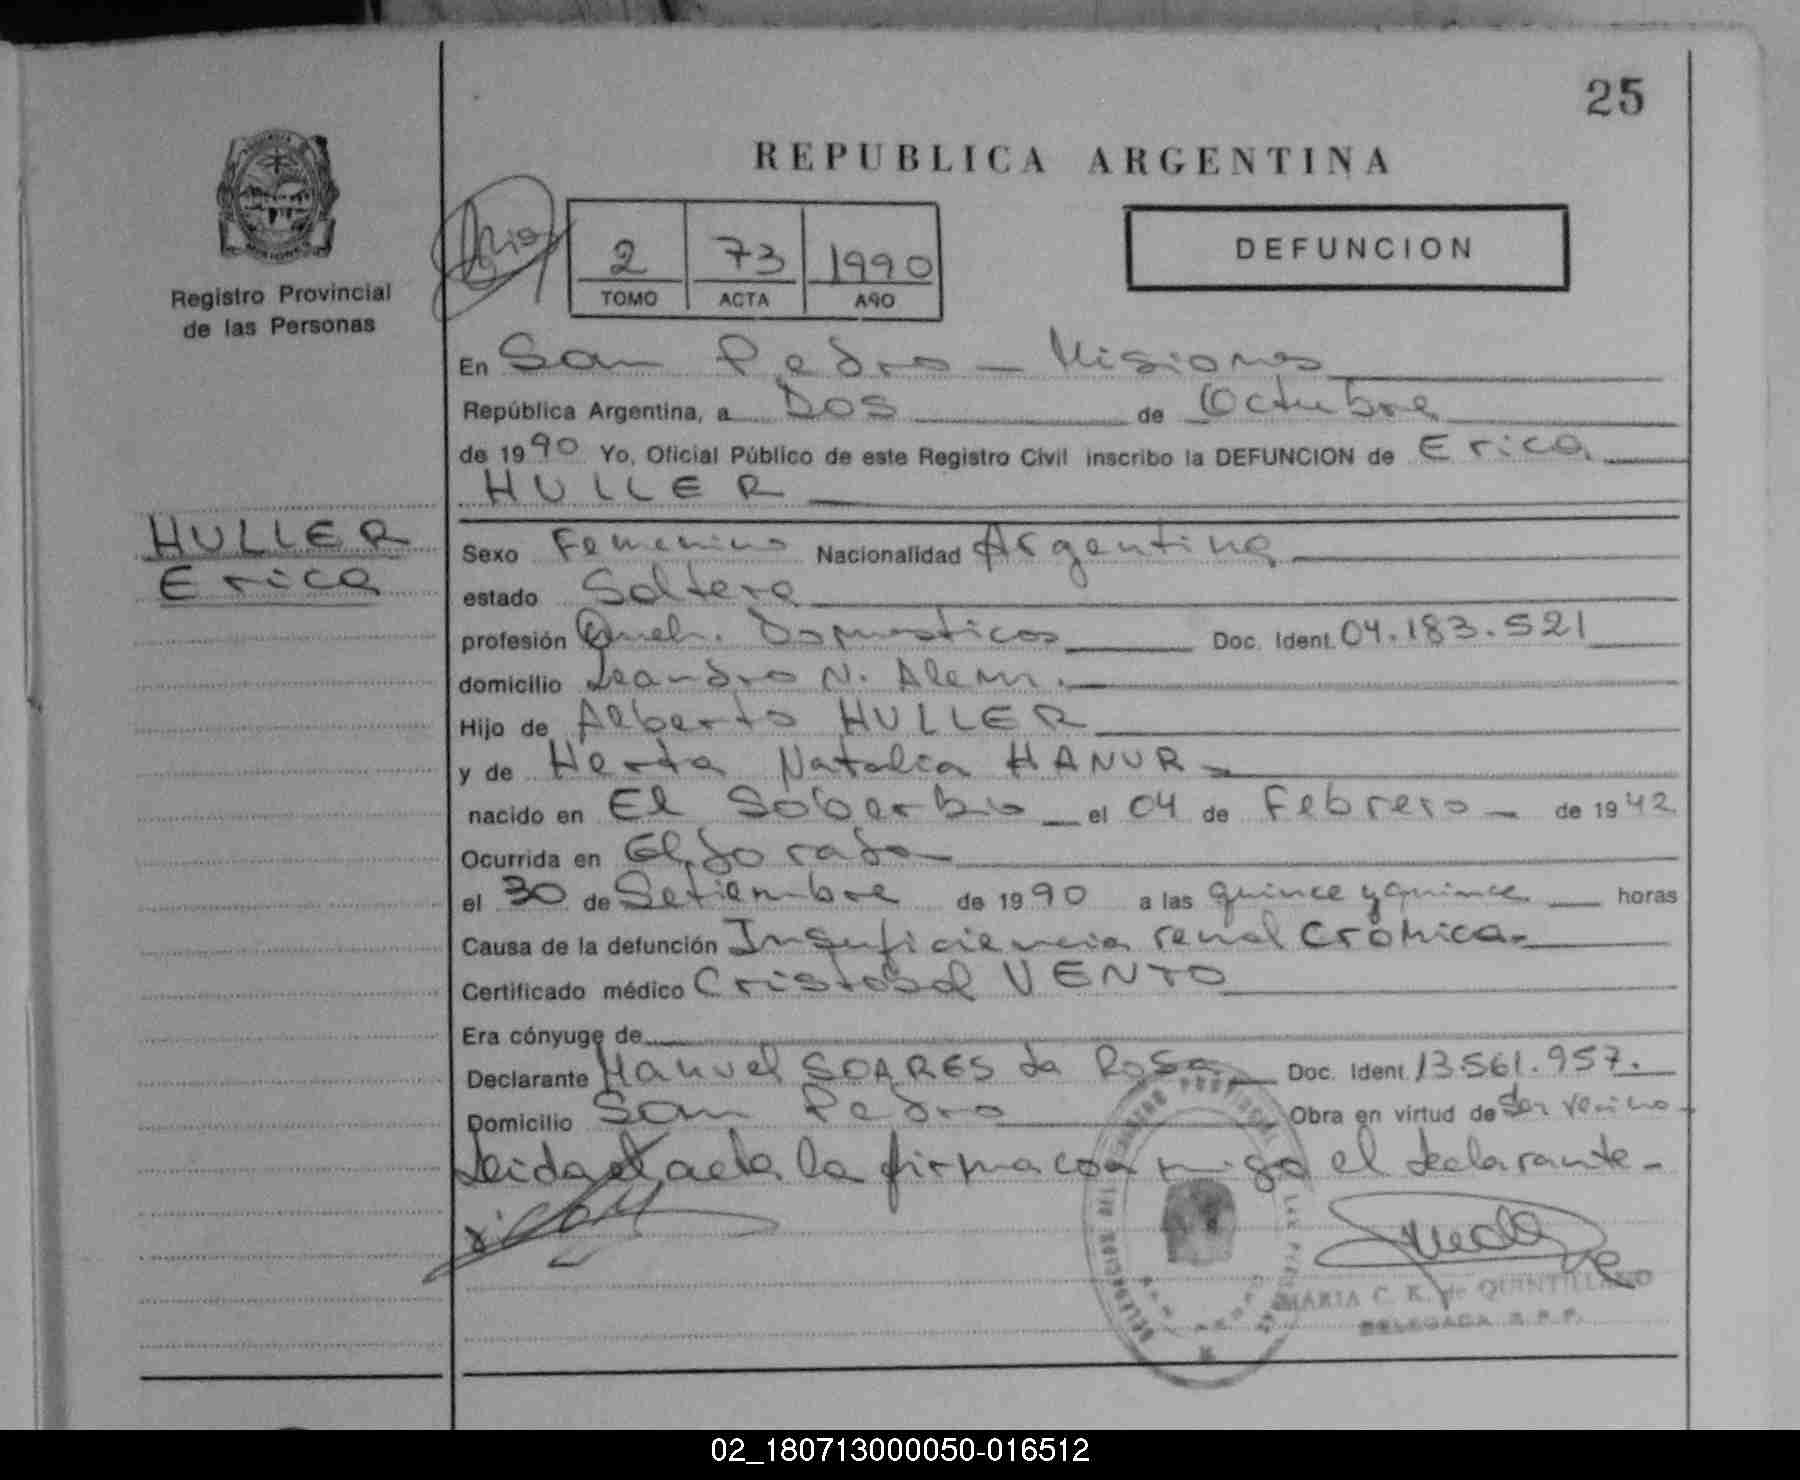 25
REPUBLICA ARGENTINA
Registro Provincial
de las Personas
2 73 1990
TOMO ACTA AÑO
DEFUNCION
En San Pedro - Misiones
República Argentina, a Dos de Octubre
de 1990 Yo, Oficial Público de este Registro Civil inscribo la DEFUNCION de Erica
HULLER
HULLER
Erica
Sexo Femenino Nacionalidad Argentina
estado Soltera
profesión Queh. Domesticos Doc. Ident. 04.183.521
domicilio Leandro N. Alem.
Hijo de Alberto HULLER
y de Herta Natalia HANUR
nacido en El Soberbio el 04 de Febrero de 1942
Ocurrida en Eldorado
el 30 de Setiembre de 1990 a las quince y quince horas
Causa de la defunción Insuficiencia renal Crónica
Certificado médico Cristobal VENTO
Era cónyuge de
Declarante Manuel SOARES da Rosa Doc. Ident. 13.561.957.
Domicilio San Pedro Obra en virtud de Ser Vecino
Leida el acta la firma conmigo el declarante
MARIA C. R. de QUINTILLANO
DELEGADA R.P.P.
02_180713000050-016512